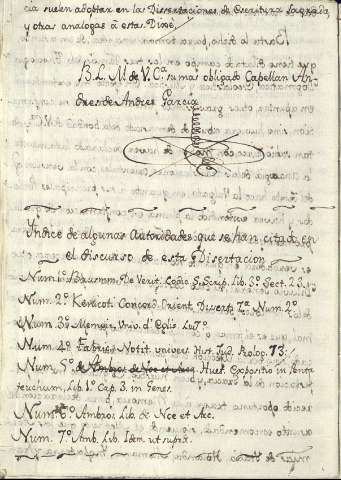 cia suelen adoptar en las Dissertaciones de Escritura Sagrada,
y otras analogas à estas Dixe,
B. L. M. de V. Cª. su mas obligado Capellan An-
dres de Andres Garcia
Indice de algunas Autoridades que se han citado en
el discurso de esta Disertacion
Num. 1º De Verit. Lib. 3º. Sect. 23.
Num. 2º. Kenicoti Concord. Orient. Dissert. 7ª. Num. 2º.
Num. 3º. Univ. d.
Num. 4º. Fabric. Notit. univers. Hist. Jud. Prolog. 73.
Num. 5º. Huet. Expositio in Penta
teuchum, Lib. 1º Cap. 3. in Genes.
Num. 6º. Ambros. Lib. de Noe et Arc.
Num. 7º. Amb. Lib. Idem ut supra.